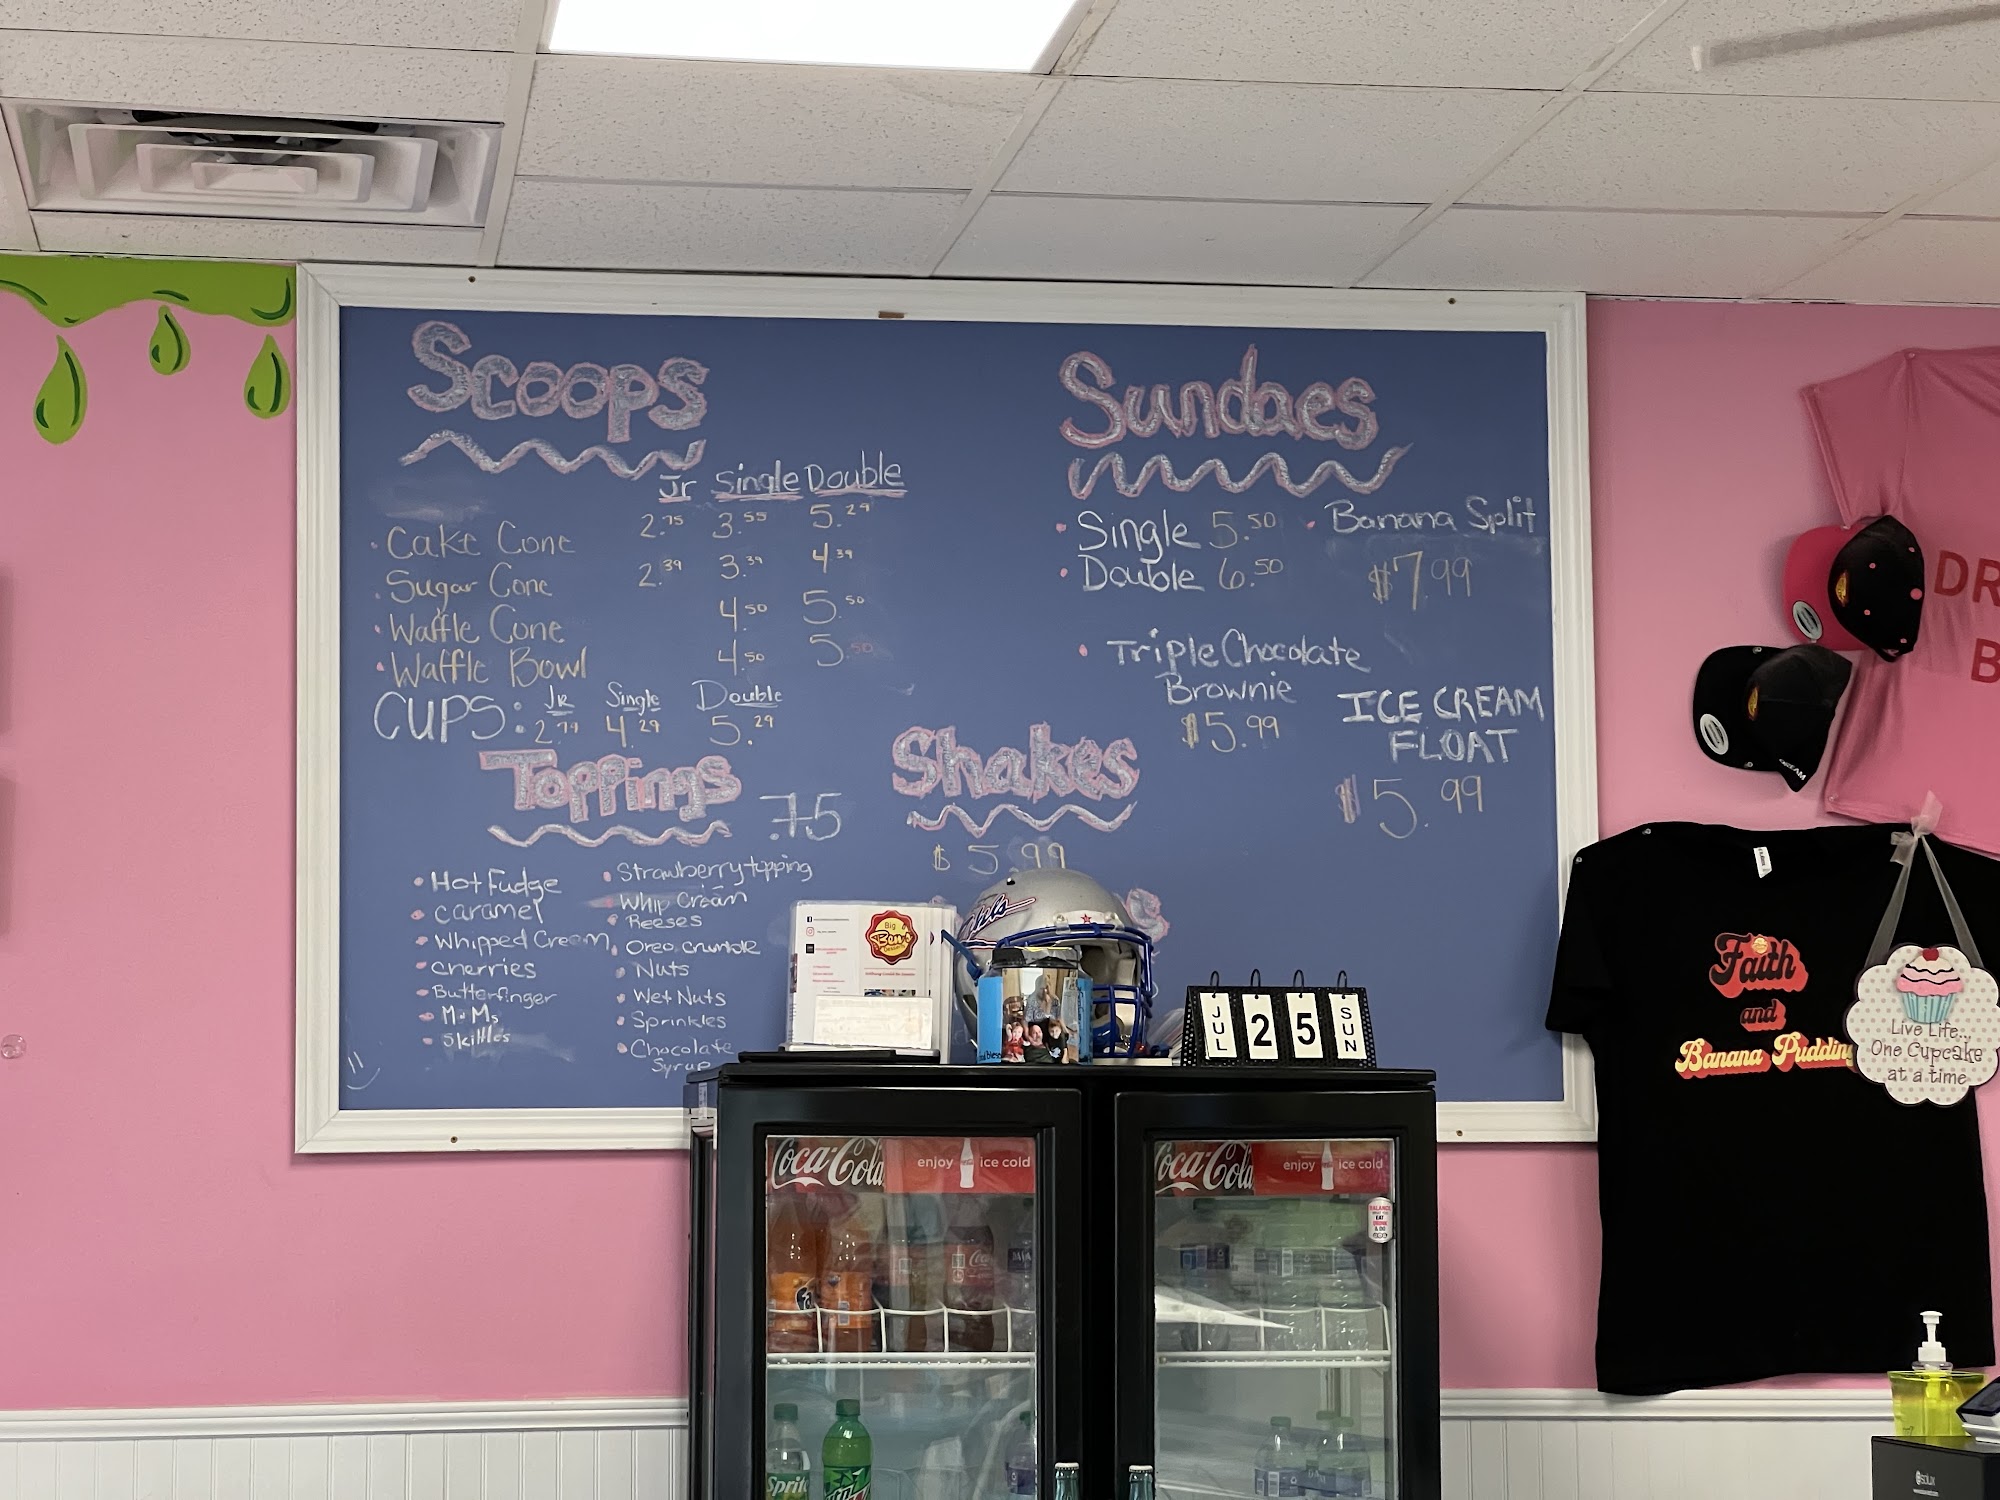 Scoops
Jr Single Double
Cake Cone 2.75 3.55 5.29
Sugar Cone 2.39 3.39 4.39
Waffle Cone 4.50 5.50
Waffle Bowl 4.50 5.50
CUPS: Jr Single Double
2.79 4.29 5.29
Toppings .75
Hot Fudge
Caramel
Whipped Cream
Cherries
Butterfinger
M.Ms
Skittles
Strawberry topping
Whip Cream
Reeses
Oreo crumble
Nuts
Wet Nuts
Sprinkles
Chocolate
Syrup
Shakes
$5.99
Sundaes
Single 5.50
Double 6.50
Banana Split
$7.99
Triple Chocolate
Brownie
$5.99
ICE CREAM
FLOAT
$5.99
Big
Ben's
JUL 25 SUN
Coca-Cola enjoy ice cold
Coca-Cola enjoy ice cold
Sprite
DR
B
Faith
and
Banana Pudding
Live Life...
One Cupcake
at a time